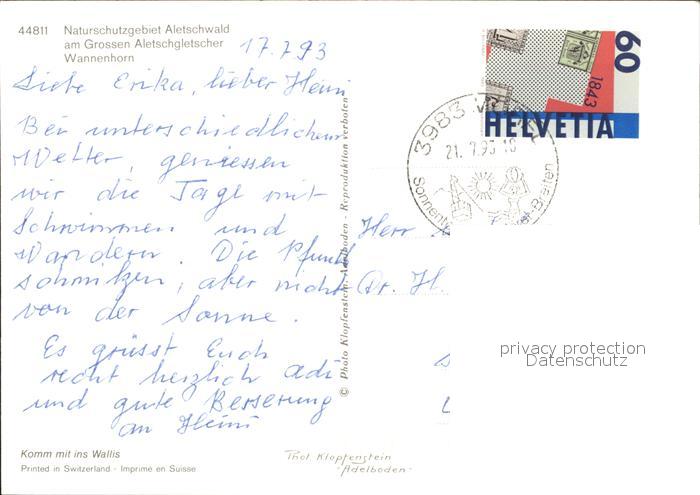 44811 Naturschutzgebiet Aletschwald
am Grossen Aletschgletscher
Wannenhorn
17.7.93
Liebe Erika, lieber Heini
Bei unterschiedlichem
Wetter, geniessen
wir die Tage mit
Schwimmen und
Wandern. Die Pfund
schmitzen, aber nicht
von der Sonne.
Es grüsst Euch
recht herzlich Adi
und gute Besserung
an Heini
Komm mit ins Wallis
Printed in Switzerland - Imprimé en Suisse
© Photo Klopfenstein - Adelboden - Reproduktion verboten
Phot. Klopfenstein
"Adelboden"
60
1843
HELVETIA
3983
21. 7.93 - 18
Breiten
Herr
Dr. H.
privacy protection
Datenschutz